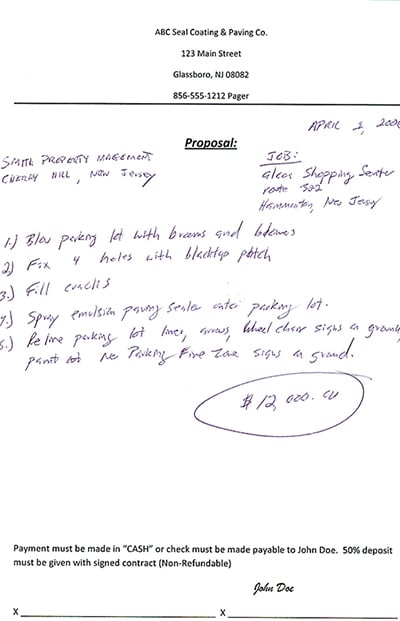 ABC Seal Coating & Paving Co.
123 Main Street
Glassboro, NJ 08082
856-555-1212 Pager
APRIL 1, 200
Proposal:
SMITH PROPERTY MAGEMENT
CHERRY HILL, NEW JERSEY
JOB:
Shopping Senter
route 322
Hammonton, New Jersey
1.) Blow parking lot with brooms and blowers
2) Fix 4 holes with blacktop patch
3.) Fill cracks
4.) Spray emulsion paving sealer parking lot.
5.) Reline parking lot lines, arrows, wheel chair signs on ground,
paint No Parking Fire Zone signs on ground.
$12,000.00
Payment must be made in "CASH" or check must be made payable to John Doe. 50% deposit
must be given with signed contract (Non-Refundable)
John Doe
X
X